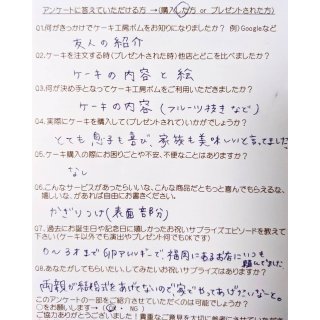 アンケートに答えていただける方 →(購入した方 or プレゼントされた方)
Q1.何がきっかけでケーキ工房ボムをお知りになりましたか? 例)Googleなど
友人の紹介
Q2.ケーキを注文する時(プレゼントされた時)他店とどこを比べましたか?
ケーキの内容と絵
Q3.何が決め手となってケーキ工房ボムをご利用いただきましたか?
ケーキの内容(フルーツ抜きなど)
Q4.実際にケーキを購入して(プレゼントされて)いかがでしょうか?
とても息子も喜び、家族も美味しいと言ってました
Q5.ケーキ購入の際にお困りごとや不安、不便なことはありますか?
なし
Q6.こんなサービスがあったらいいな、こんな商品だともっと喜んでもらえるな、
嬉しいな、があれば自由にお書きください。
かざりつけ(表面部分)
Q7.過去にお誕生日や記念日に嬉しかったお祝いサプライズエピソードを教えて
下さい(ケーキ以外でも演出やプレゼント何でもOKです)
3才まで卵アレルギーで、福岡にあるお店にいつも
頼んでました
Q8.あなたがしてもらいたい、してみたいお祝いサプライズはありますか?
両親が結婚式をあげてないので家でやってあげたいなーと。
このアンケートの一部をご紹介させていただくのは可能でしょうか?
○をお願いします→(OK・NG)
ご協力ありがとうございました!貴重なご意見を大切に参考にさせていただきます